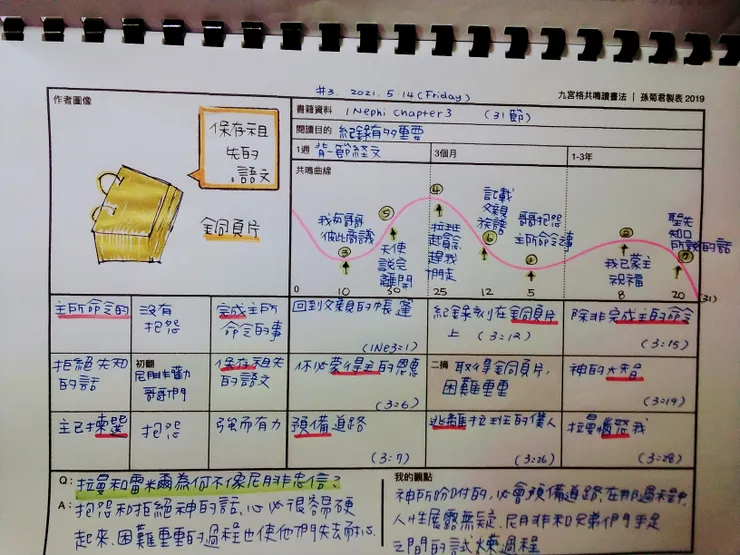 #3. 2021.5.14(Friday)
九宮格共鳴讀書法 | 孫菊君製表 2019
作者圖像
書籍資料 1Nephi Chapter3 (31節)
閱讀目的 紀錄的重要
1週 背一節經文
3個月
1-3年
保存祖
先的
語文
銅頁片
共鳴曲線
我與哥哥
彼此商議
③
⑤
天使
說完
離開
④
拉班
起貪念
趕我
們走
記載
父親
族譜
⑥
哥哥抱怨
主所命令事
①
②
我已蒙主
祝福
聖先
知口
所說的話
⑦
0 10 30 25 12 5 8 20 (31)
主所命令的
沒有
抱怨
完成主所
命令的事
回到父親的帳蓬
(1Ne3:1)
紀錄刻在銅頁片
上 (3:12)
除非完成主的命令
(3:15)
拒絕先知
的話
初翻
尼腓勸
哥哥們
保存祖先
的語文
你必蒙得主的恩惠
(3:6)
二摘 取得銅頁片,
困難重重
神的大智
(3:19)
主已揀選
抱怨
強而有力
預備道路
(3:7)
逃離拉班的僕人
(3:26)
拉曼惱怒我
(3:28)
Q: 拉曼和雷米爾為何不像尼腓忠信?
A: 抱怨和拒絕神的話,心必很容易硬
起來,困難重重的過程也使他們失去耐心.
我的觀點
神所吩咐的,必會預備道路,在那過程中,
人性展露無疑,尼腓和兄弟們手足
之間的試煉過程